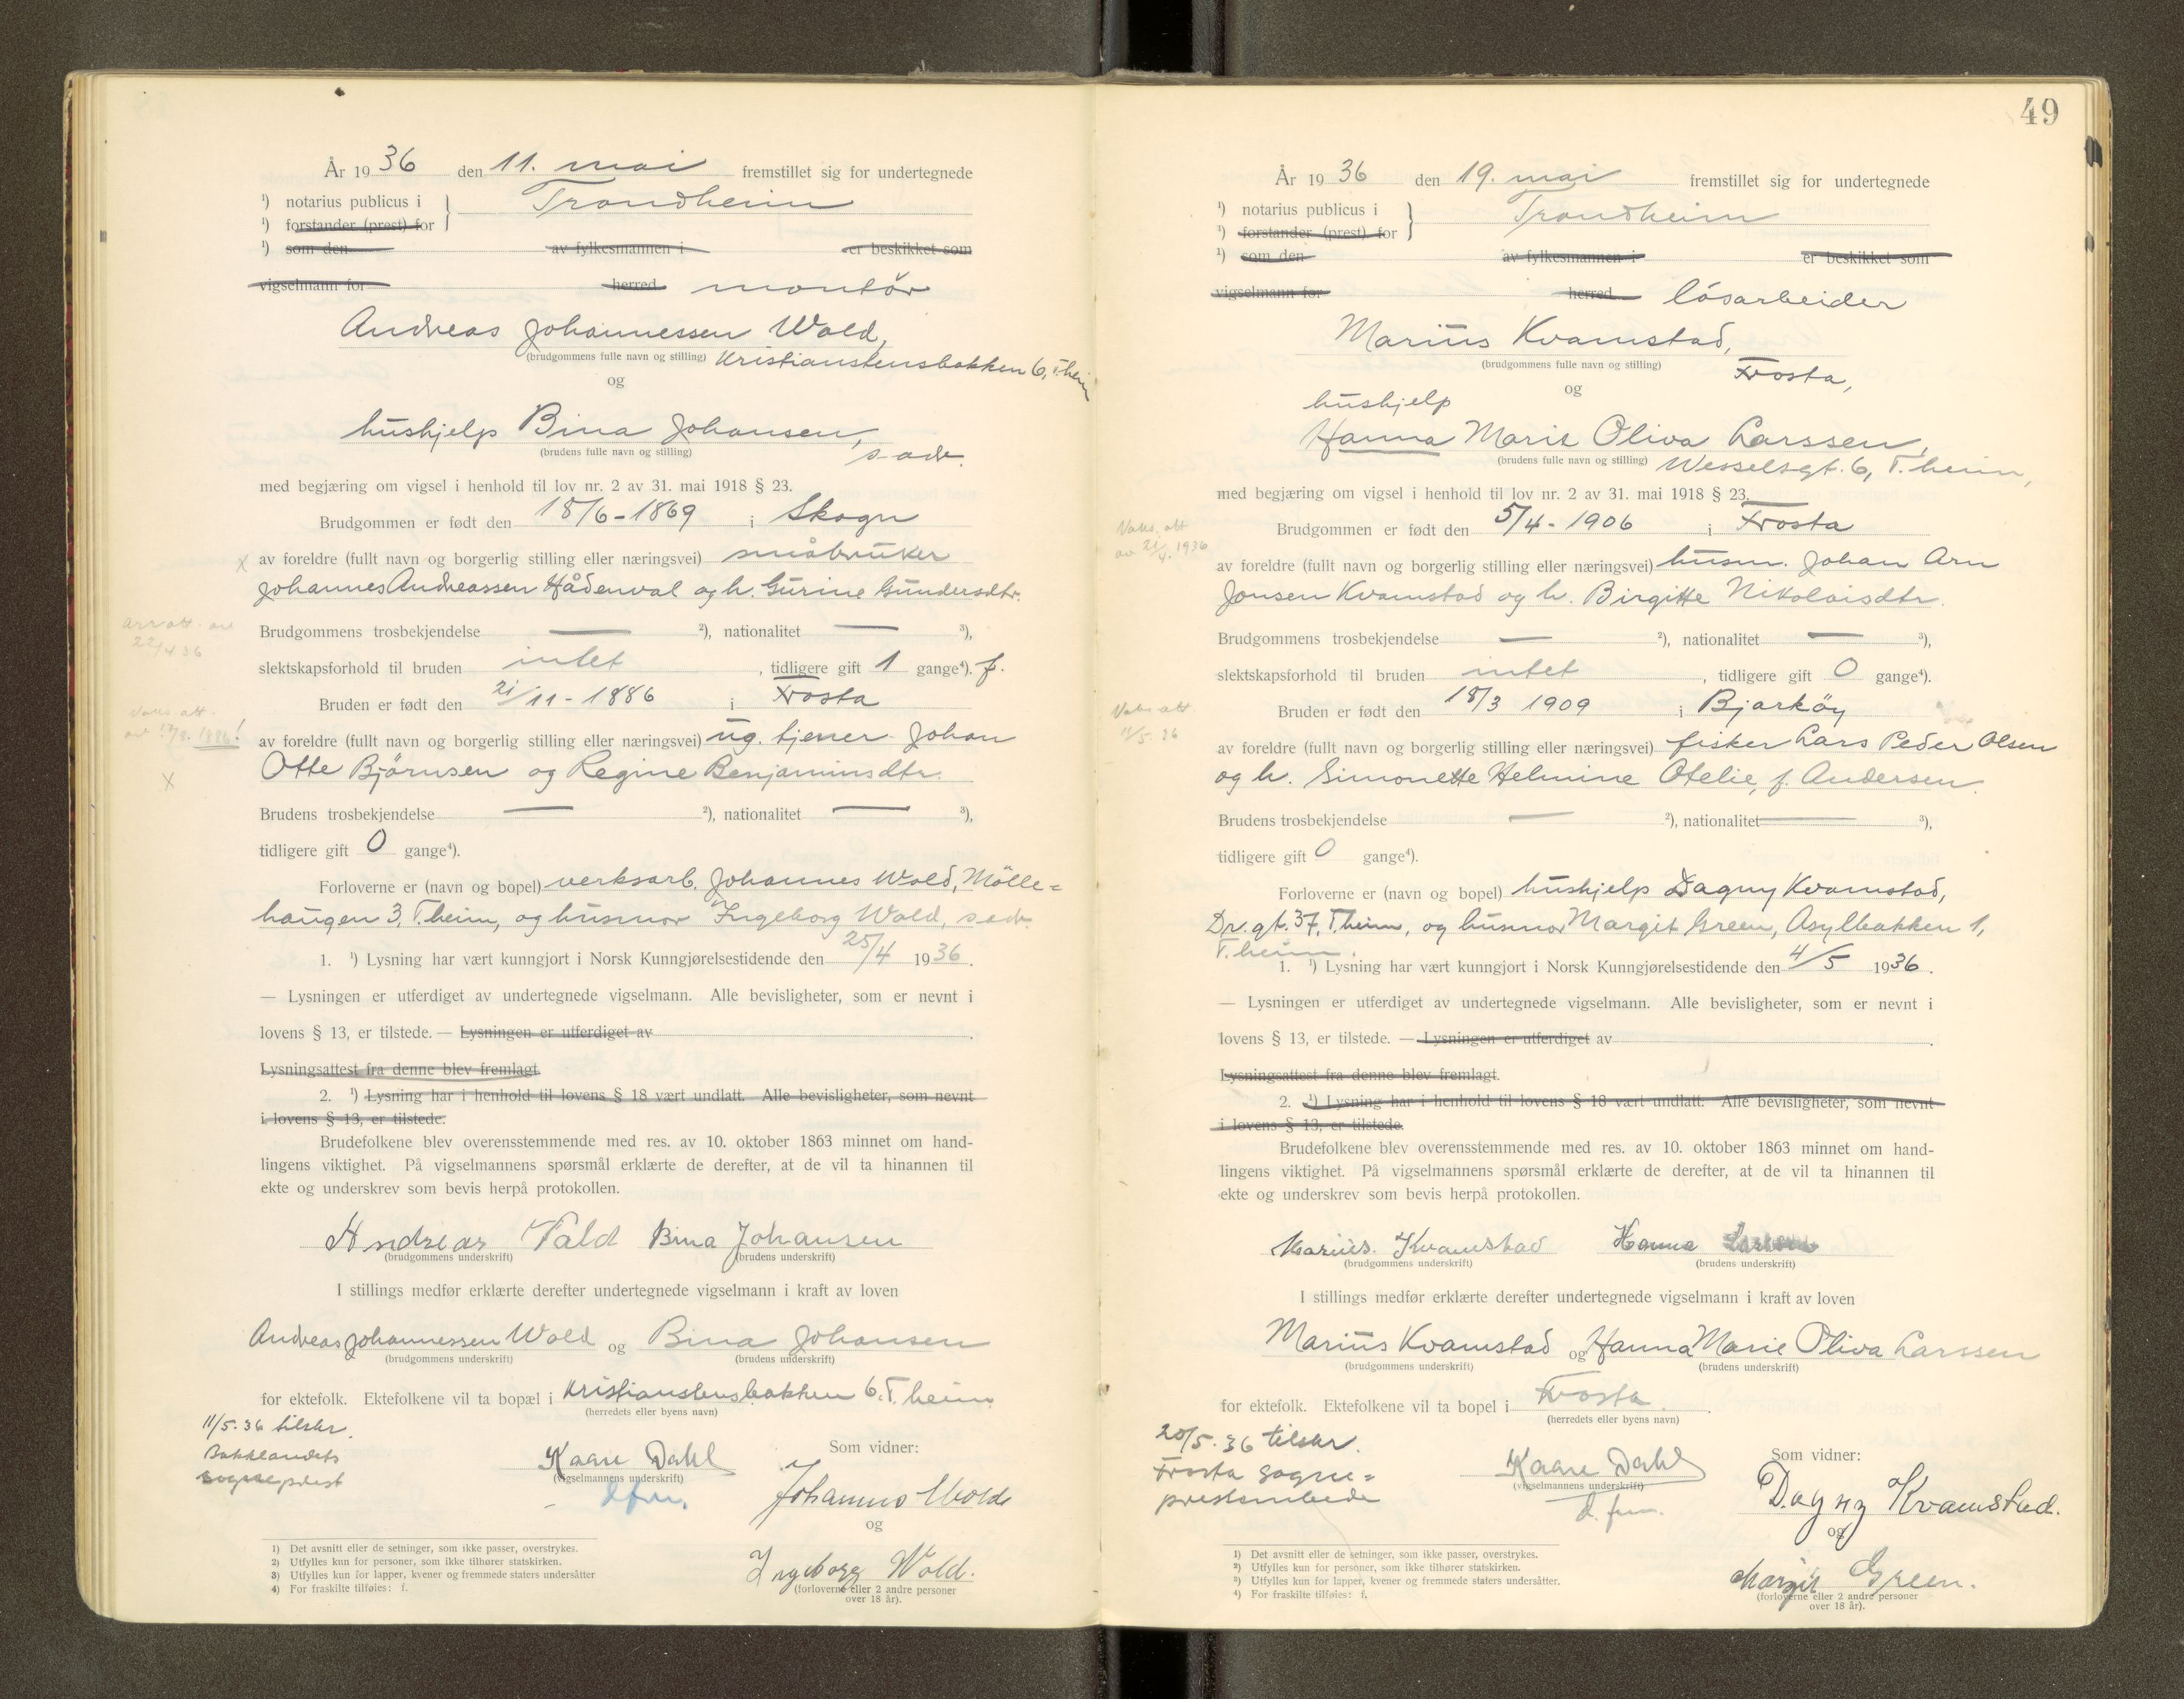 År 1936 den 11. mai fremstillet sig for undertegnede
¹) notarius publicus i Trondheim
¹) forstander (prest) for
¹) som den av fylkesmannen i er beskikket som
vigselmann for herred montör
Andreas Johannessen Wold,
(brudgommens fulle navn og stilling) Kristianstensbakken 6, T.heim
og
hushjelp Bina Johansen,
(brudens fulle navn og stilling) s. adr.
med begjæring om vigsel i henhold til lov nr. 2 av 31. mai 1918 § 23.
Brudgommen er født den 18/6-1869 i Skogn
x av foreldre (fullt navn og borgerlig stilling eller næringsvei) småbruker
Johannes Andreassen Hådenval og h. Gurine Gundersdtr.
Brudgommens trosbekjendelse — ²), nationalitet — ³),
22/4 36
slektskapsforhold til bruden intet, tidligere gift 1 gange⁴). f.
Bruden er født den 21/11-1886 i Frosta
av foreldre (fullt navn og borgerlig stilling eller næringsvei) ug. tjener Johan
Otte Björnsen og Regine Benjaminsdtr.
x
Brudens trosbekjendelse — ²), nationalitet — ³),
tidligere gift 0 gange⁴).
Forloverne er (navn og bopel) verksarb. Johannes Wold, Mölle=
haugen 3, T.heim, og husmor Ingeborg Wold, s. adr.
1. ¹) Lysning har vært kunngjort i Norsk Kunngjørelsestidende den 25/4 1936.
— Lysningen er utferdiget av undertegnede vigselmann. Alle bevisligheter, som er nevnt i
lovens § 13, er tilstede. — Lysningen er utferdiget av .
Lysningsattest fra denne blev fremlagt.
2. ¹) Lysning har i henhold til lovens § 18 vært undlatt. Alle bevisligheter, som nevnt
i lovens § 13, er tilstede.
Brudefolkene blev overensstemmende med res. av 10. oktober 1863 minnet om hand-
lingens viktighet. På vigselmannens spørsmål erklærte de derefter, at de vil ta hinannen til
ekte og underskrev som bevis herpå protokollen.
Andreas Vald Bina Johansen
(brudgommens underskrift) (brudens underskrift)
I stillings medfør erklærte derefter undertegnede vigselmann i kraft av loven
Andreas Johannessen Wold og Bina Johansen
(brudgommens underskrift) (brudens underskrift)
for ektefolk. Ektefolkene vil ta bopæl i Kristianstensbakken 6. T.heim
(herredets eller byens navn)
11/5.36 tilskr.
Bakklandets
sogneprest
Kaare Dahl
(vigselmannens underskrift)
d.fm.
Som vidner:
Johannes Wold
og
Ingeborg Wold.
(forloverne eller 2 andre personer
over 18 år).
1) Det avsnitt eller de setninger, som ikke passer, overstrykes.
2) Utfylles kun for personer, som ikke tilhører statskirken.
3) Utfylles kun for lapper, kvener og fremmede staters undersåtter
4) For fraskilte tilføies: f.
49
År 1936 den 19. mai fremstillet sig for undertegnede
¹) notarius publicus i Trondheim
¹) forstander (prest) for
¹) som den av fylkesmannen i er beskikket som
vigselmann for herred lösarbeider
Marius Kvamstad,
(brudgommens fulle navn og stilling) Frosta,
og
hushjelp
Hanna Marie Oliva Larssen,
(brudens fulle navn og stilling) Wesselsgt. 6, T.heim,
med begjæring om vigsel i henhold til lov nr. 2 av 31. mai 1918 § 23.
Brudgommen er født den 5/4-1906 i Frosta
Vaks. att
av 21/4. 1936
av foreldre (fullt navn og borgerlig stilling eller næringsvei) husm. Johan Arn
Jonsen Kvamstad og h. Birgitte Nikolaisdtr.
Brudgommens trosbekjendelse — ²), nationalitet — ³),
slektskapsforhold til bruden intet, tidligere gift 0 gange⁴).
Bruden er født den 18/3 1909 i Bjarköy
Vaks att
11/5. 36
av foreldre (fullt navn og borgerlig stilling eller næringsvei) fisker Lars Peder Olsen
og h. Simonette Helmine Otelie, f. Andersen.
Brudens trosbekjendelse — ²), nationalitet — ³),
tidligere gift 0 gange⁴).
Forloverne er (navn og bopel) hushjelp Dagny Kvamstad,
Dr. gt. 37, T.heim, og husmor Margit Green, Asylbakken 1,
T.heim.
1. ¹) Lysning har vært kunngjort i Norsk Kunngjørelsestidende den 4/5 1936.
— Lysningen er utferdiget av undertegnede vigselmann. Alle bevisligheter, som er nevnt i
lovens § 13, er tilstede. — Lysningen er utferdiget av .
Lysningsattest fra denne blev fremlagt.
2. ¹) Lysning har i henhold til lovens § 18 vært undlatt. Alle bevisligheter, som nevnt
i lovens § 13, er tilstede.
Brudefolkene blev overensstemmende med res. av 10. oktober 1863 minnet om hand-
lingens viktighet. På vigselmannens spørsmål erklærte de derefter, at de vil ta hinannen til
ekte og underskrev som bevis herpå protokollen.
Marius Kvamstad Hanna Larssen
(brudgommens underskrift) (brudens underskrift)
I stillings medfør erklærte derefter undertegnede vigselmann i kraft av loven
Marius Kvamstad og Hanna Marie Oliva Larssen
(brudgommens underskrift) (brudens underskrift)
for ektefolk. Ektefolkene vil ta bopel i Frosta.
(herredets eller byens navn)
20/5.36 tilskr.
Frosta sogne=
prestembede
Kaare Dahl
(vigselmannens underskrift)
d. fm.
Som vidner:
Dagny Kvamstad.
og
Margit Green.
(forloverne eller 2 andre personer
over 18 år).
1) Det avsnitt eller de setninger, som ikke passer, overstrykes.
2) Utfylles kun for personer, som ikke tilhører statskirken.
3) Utfylles kun for lapper, kvener og fremmede staters undersåtter.
4) For fraskilte tilføies: f.